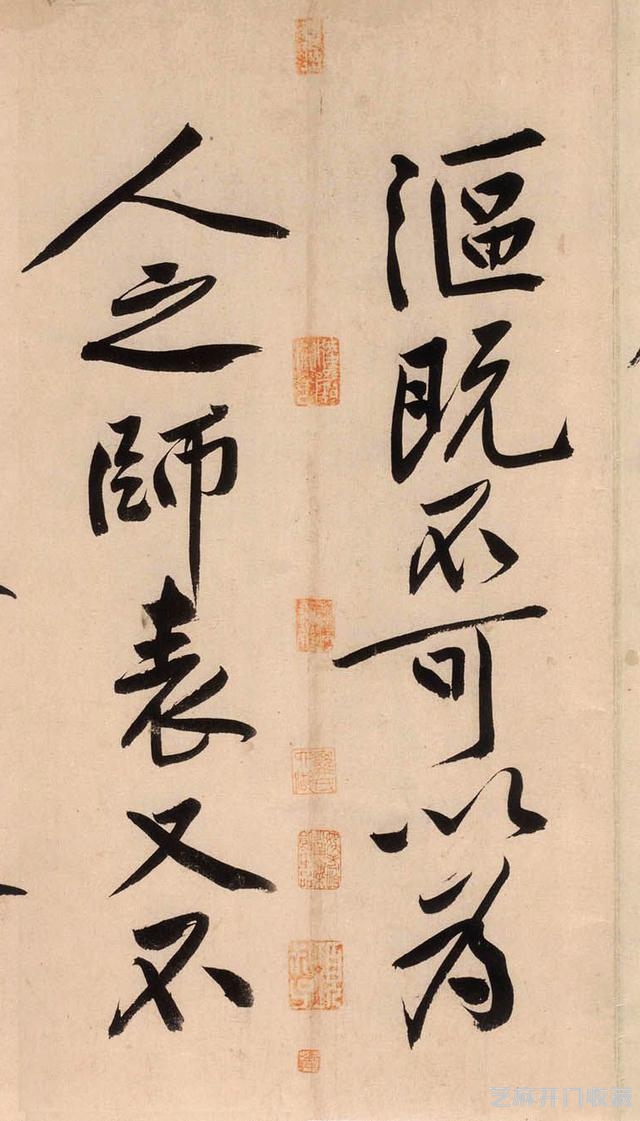 漚既不可以為
人之師表又不
芝麻开门收藏